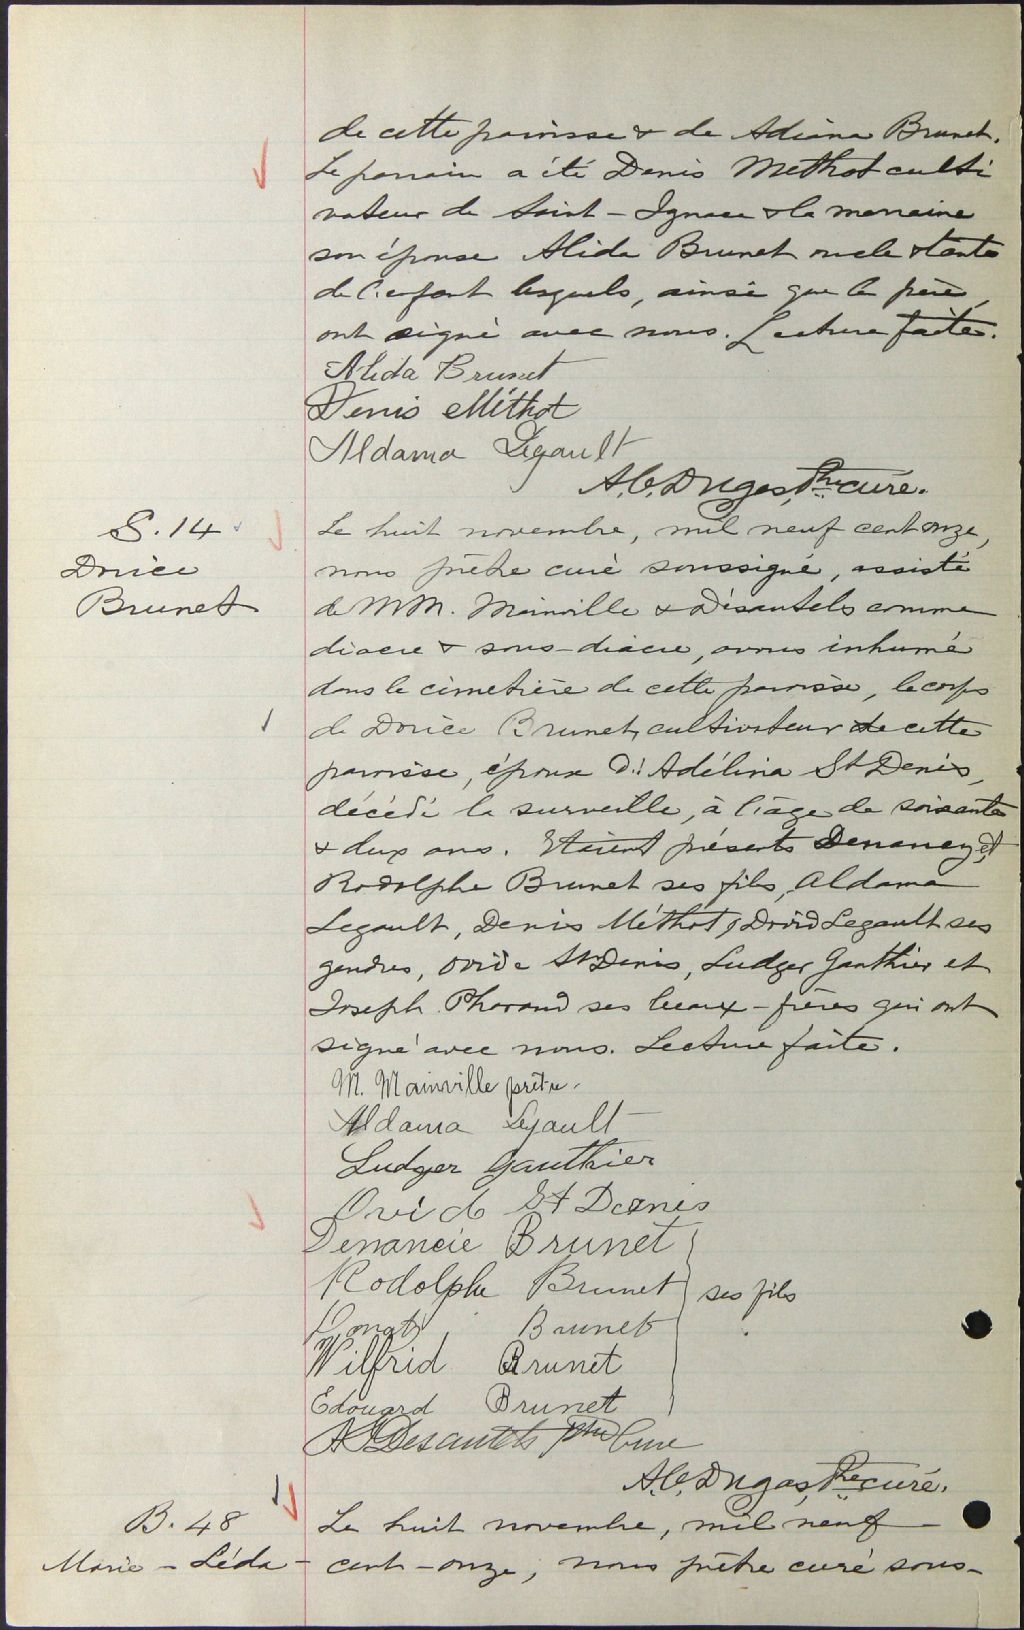 de cette paroisse & de Adiana Brunet.
Le parrain a été Denis Methot culti
vateur de Saint-Ignace & la marraine
son épouse Alida Brunet oncle & tante
de l'enfant lesquels, ainsi que le père,
ont signé avec nous. Lecture faite.
Alida Brunet
Denis Méthot
Aldama Légault
A.C. Dugas, Ptre curé.
S. 14
Dorice
Brunet
Le huit novembre, mil neuf cent onze,
nous prêtre curé soussigné, assisté
de MM. Mainville & Désautels comme
diacre & sous-diacre, avons inhumé
dans le cimetière de cette paroisse, le corps
de Dorice Brunet, cultivateur de cette
paroisse, époux d'Adélina St Denis,
décédé la surveille, à l'âge de soixante
& deux ans. Etaient présents Denancy, et
Rodolphe Brunet ses fils, Aldama
Legault, Denis Méthot, David Legault ses
gendres, Ovide St Denis, Ludger Gauthier et
Joseph Pharand ses beaux-frères qui ont
signé avec nous. Lecture faite.
M. Mainville prêtre.
Aldama Legault
Ludger Gauthier
Ovide St Denis
Denancie Brunet
Rodolphe Brunet ses fils
Donat Brunet
Wilfrid Brunet
Edouard Brunet
Desautels ptre Cure
A.C. Dugas, Ptre curé.
B. 48
Marie-Léda-
Le huit novembre, mil neuf-
cent-onze, nous prêtre curé sous-